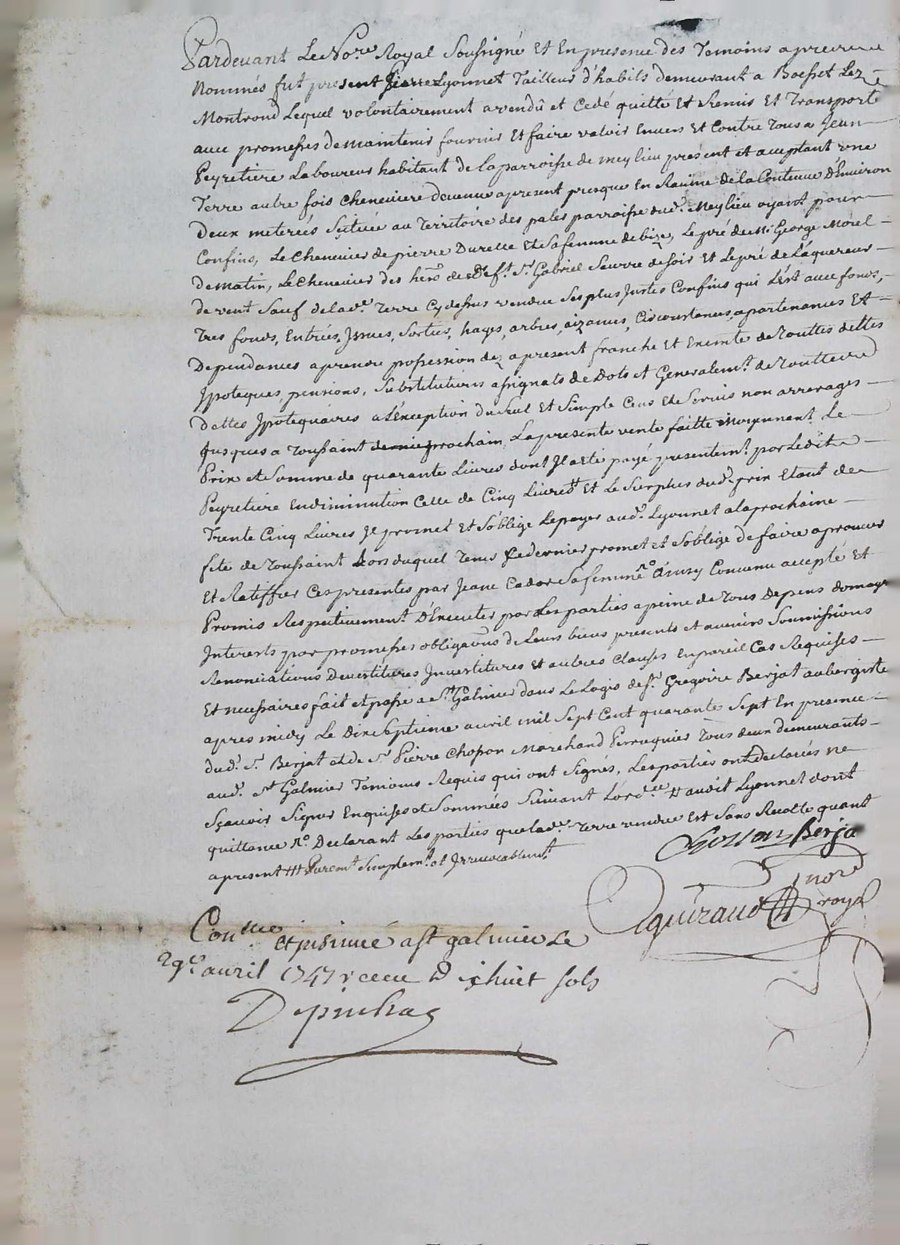 Pardevant Le No.re Royal Soussigné Et En presence des Temoins apres
Nommés fut present Pierre Lyonnet Tailleur d'habits demeurant a Boisset Lez
Montrond Lequel volontairement a vendû et Cedé quitté Et Remis Et Transporté
avec promesses de maintenir fournir Et faire valoir Envers et Contre Tous a Jean
Peyretiere Laboureur habitant de la parroisse de meylieu present et acceptant une
Terre autre fois cheneviere devenue apresent presque En Ravine de la Contenue D'Environ
Deux meterées Scituée au Territoire des pales parroisse dud. Meylieu ayant pour
Confins, Le chenevier de pierre Durelle Et sa femme de bize, Le pré de Mr George Morel
de matin, Le chenevier des her.s de deft. Sr. Gabriel Seurre de soir Et Le pré de L'aquereur
de vent Sauf de lad. Terre Cy dessus vendue Ses plus Justes Confins qui L'Est avec fonds,
Tres fonds, Entrées, Issues, Sorties, hayes, arbres, aizances, Circonstances, apartenances Et
Dependances a prendre possession dez apresent franche Et Exempte de Touttes dettes
Ipoteques, pensions, Substitutions assignats de Dots Et Generalem.t de Toutte
dettes Ipotequaires a L'Exception du Seul Et Simple Cens Et Servis non arrerages
Jusques a Toussaint prochain, La presente vente faitte Moyenant Le
Prix et Somme de quarante Livres dont Il a Eté payé presentem.t par Ledit
Peyretiere En diminution Celle de Cinq Livres Et Le Surplus dud. prix Etant de
Trente Cinq Livres Il promet Et S'oblige Le payer aud. Lyonnet a la prochaine
fete de Toussaint Lors duquel Tems Ce dernier promet et S'oblige de faire aprouver
Et Ratiffier Ces presentes par Jeane Cador Sa femme Ainsy Convenu accepté Et
Promis Respectivement D'Executer par Les parties a peine de Tous Depens domages
Interests par promesses obligaõns de Leurs biens presents et avenirs Soumissions
Renonciations Devestitures Investitures Et autres Clauses En pareil Cas Requises
Et necessaires fait et passé a St. Galmier dans Le Logis de Sr. Gregoire Berjat aubergiste
apres midy Le Dix Septieme avril mil Sept Cent quarante Sept En presence
dud. Sr. Berjat et de Sr. Pierre Chopon Marchand Perruquier Tous deux demeurants
aud. St. Galmier Temoins Requis qui ont Signés, Les parties ont declarés ne
Sçavoir Signer Enquises et Sommées Suivant L'ord.ce # audit Lyonnet dont
quittance Declarant Les parties que lad. Terre vendue Est Sans Recolte quant
apresent # Purem.t Simplem.t et Irrevocablem.t
Chopon Berja
Aguiraud nore
royal
Con.llé et jnsinué a St galmier Le
29e avril 1747 receu Dixhuit Sols